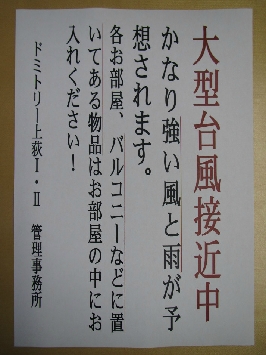 大型台風接近中
かなり強い風と雨が予
想されます。
各お部屋、バルコニーなどに置
いてある物品はお部屋の中にお
入れください！
ドミトリー上荻Ⅰ・Ⅱ　管理事務所